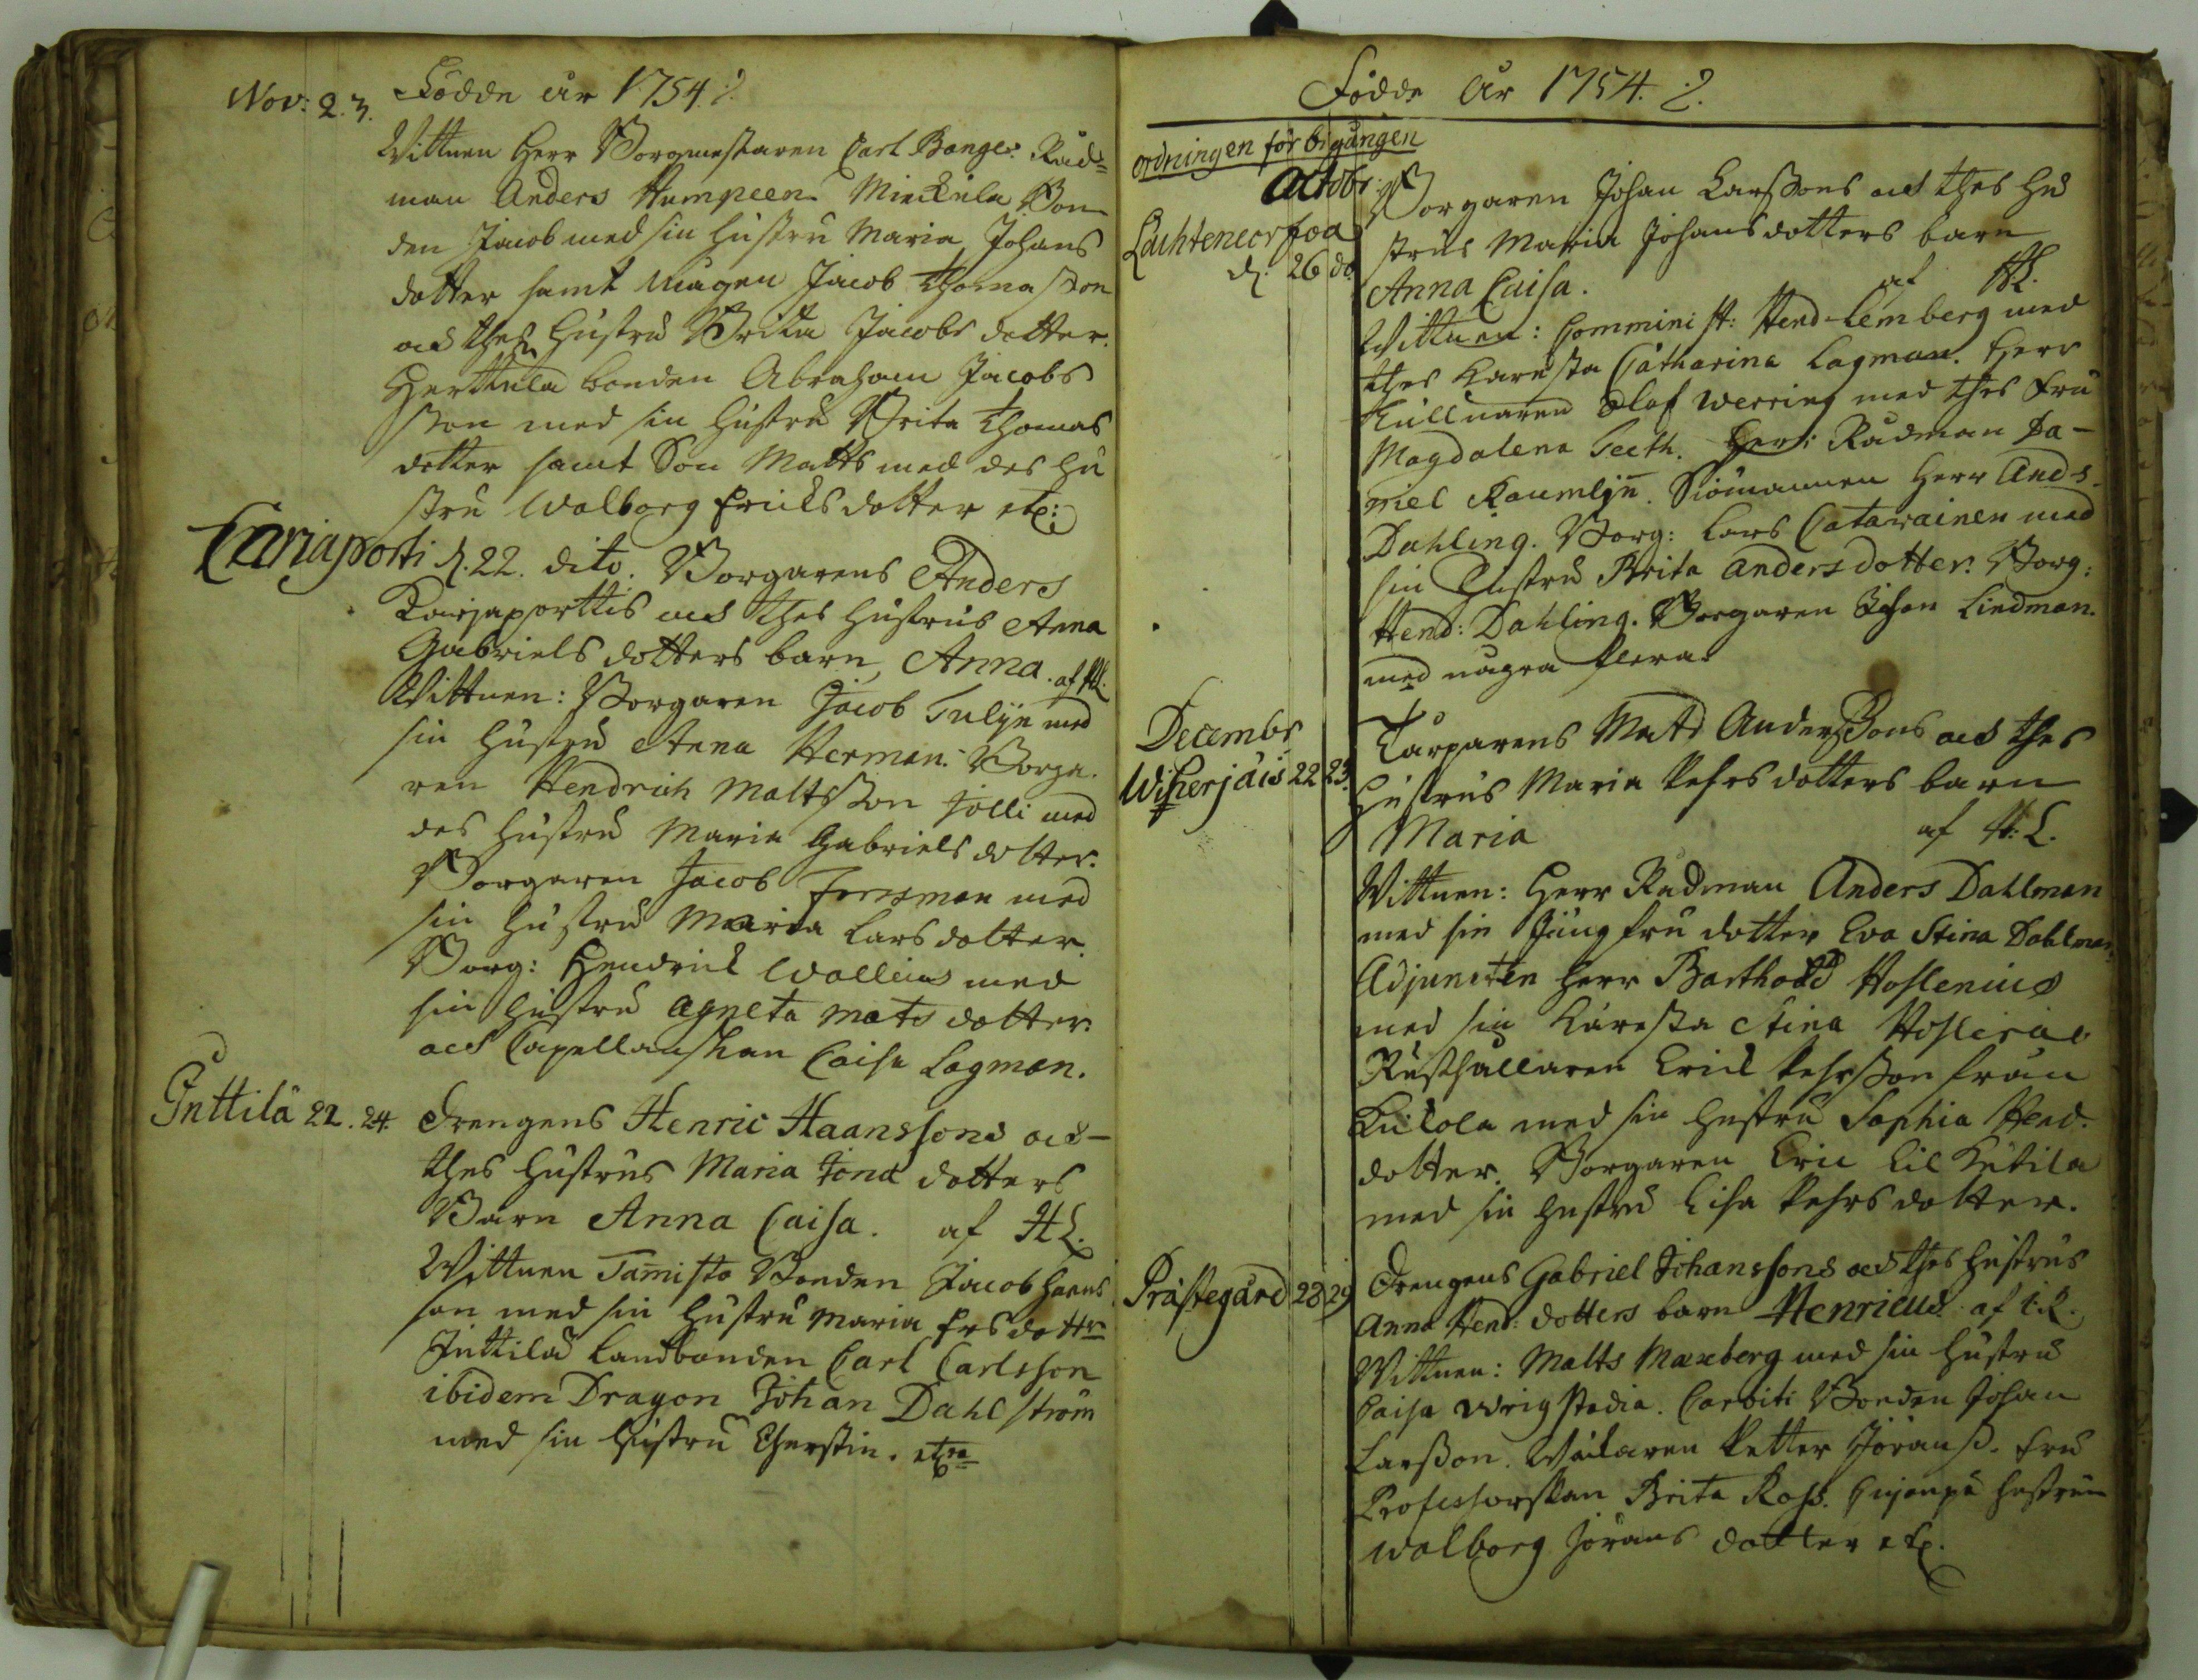 Födde år 1754.
Nov: 2. 3.
Wittnen Herr Borgmestaren Carl Bange. Råd=
man Anders Kumpeen. Mickula Bon
den Jacob med sin hustru Maria Johans
dotter samt mågen Jacob Thomasson
och thes hustru Brita Jacobs dotter.
Herttula bonden Abraham Jacobs
son med sin hustru Brita Thomas
dotter samt Son Matts med des hu
stru Walborg Ericksdotter etc:
Cariaporti d. 22. dito. Borgarens Anders
Kariaporttis och thes hustrus Anna
Gabriels dotters barn, Anna. af HL.
Wittnen: Borgaren Jacob Tulijn med
sin hustru Anna Herman. Borga-
ren Hendrich Mattsson Jölli med
des hustru Maria Gabriels dotter.
Borgaren Jacob Forsman med
sin hustru Maria Lars dotter.
Borg: Hendrick Wallius med
sin hustru Agneta Mats dotter.
och Capellanskan Caisa Lagman.
Inttilä 22. 24. Drengens Henric Haanssons och
thes hustrus Maria Jona dotters
Barn Anna Caisa. af HL.
Wittnen Tamisto Bonden Jacob Hans
son med sin hustru Maria Ers dottr
Inttilä Landbonden Carl Carlsson
ibidem Dragon Johan Dahlström
med sin hustru Cherstin. etcra
Födde År 1754.
ordningen förbigången
Octobr:
Lachtenecrfoa
d. 26 do
Borgaren Johan Larssons och thes hu
strus Maria Johansdotters barn
Anna Caisa. af HL.
Wittnen: Comminist: Hend Lemberg med
thes Käresta Catharina Lagman. Herr
Tullnären Olof Werring med thes fru
Magdalena Teeth. Herr Rådman Da-
niel Raumlijn. Siömannen Herr And-s
Dahling. Borg: Lars Catarainen med
sin Hustru Brita Andersdotter. Borg:
Hend: Dahling. Borgaren Johan Lindman.
med några flera.
Decembr
Wiherjäis 22 23.
Torparens Mats Anderssons och thes
hustrus Maria Pehrsdotters barn
Maria af H: L.
Wittnen: Herr Rådman Anders Dahlman
med sin Jungfru dotter Eva Stina Dahlman
Adjuncten Herr Barthold Hoslenius
med sin Käresta Stina Hoslenia
Rusthållaren Erick Pehrsson från
Kuckola med sin hustru Sophia Hend.
dotter. Borgaren Eric Lill Kutila
med sin hustru Lisa Pehrsdotter.
Prästegård 28 29
Drengens Gabriel Johanssons och thes hustrus
Anna Hend: dotters barn Henricus. af
Wittnen: Matts Maxberg med sin hustru
Caisa Wrigstadia. Carviti Bonden Johan
Larsson. Wäckaren Petter Jöranss. Fru
Professorskan Brita Ross. hustrun
Walborg Jörans dotter etc.